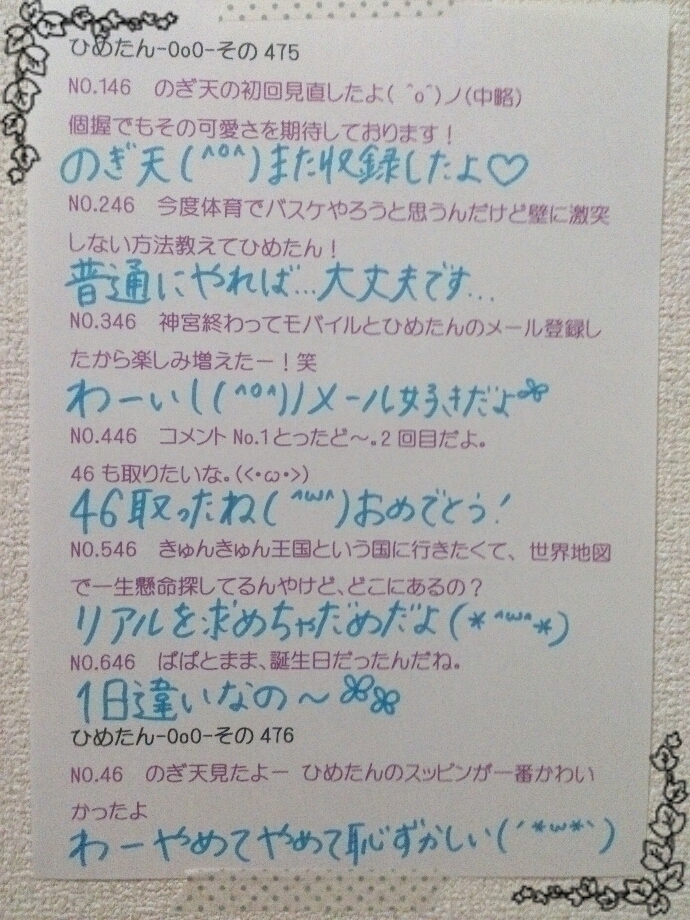 ひめたん-OoO-その475
NO.146　のぎ天の初回見直したよ( ^o^)ノ(中略)
個握でもその可愛さを期待しております！
のぎ天(^o^)また収録したよ♡
NO.246　今度体育でバスケやろうと思うんだけど壁に激突
しない方法教えてひめたん！
普通にやれば…大丈夫です…
NO.346　神宮終わってモバイルとひめたんのメール登録し
たから楽しみ増えたー！笑
わーい!(^o^)ノメール好きだよ
NO.446　コメントNo.1とったど～。2回目だよ。
46も取りたいな。(<・ω・>)
46取ったね(^ω^)おめでとう！
NO.546　きゅんきゅん王国という国に行きたくて、世界地図
で一生懸命探してるんやけど、どこにあるの？
リアルを求めちゃだめだよ(*^ω^*)
NO.646　ぱぱとまま、誕生日だったんだね。
1日違いなの～
ひめたん-OoO-その476
NO.46　のぎ天見たよー ひめたんのスッピンが一番かわい
かったよ
わーやめてやめて恥ずかしい(´*ω*`)